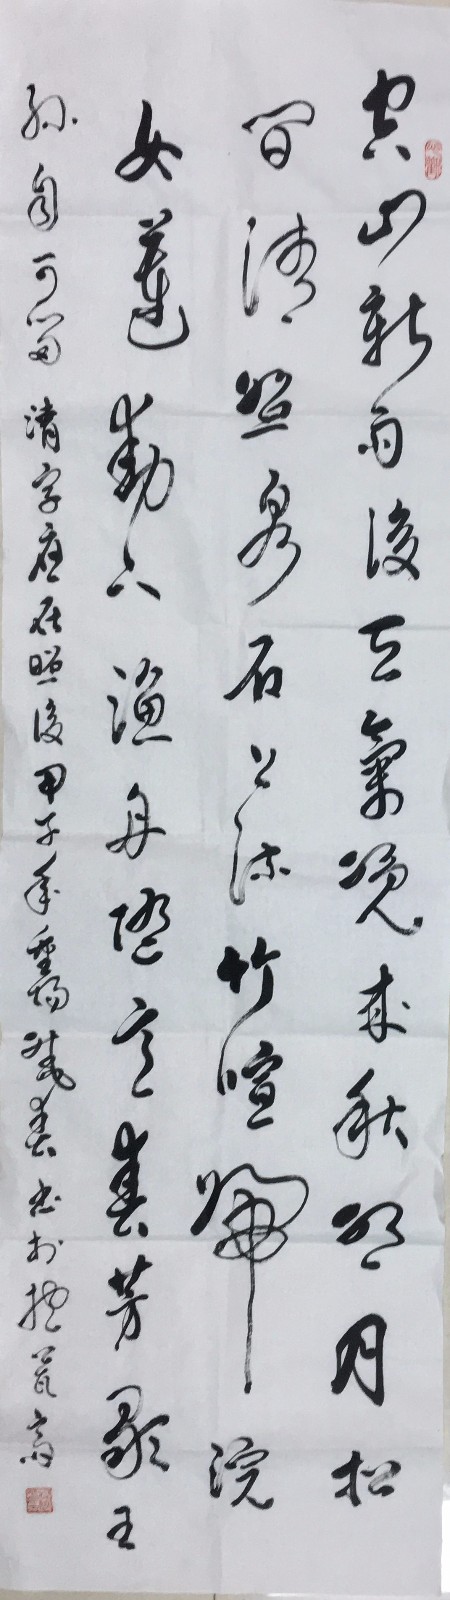 空山新雨後天氣晚来秋明月松
間清照泉石上流竹喧歸浣
女蓮動下漁舟隨意春芳歇王
孫自可留 清字應在照後 甲子年重陽 春書於 齋